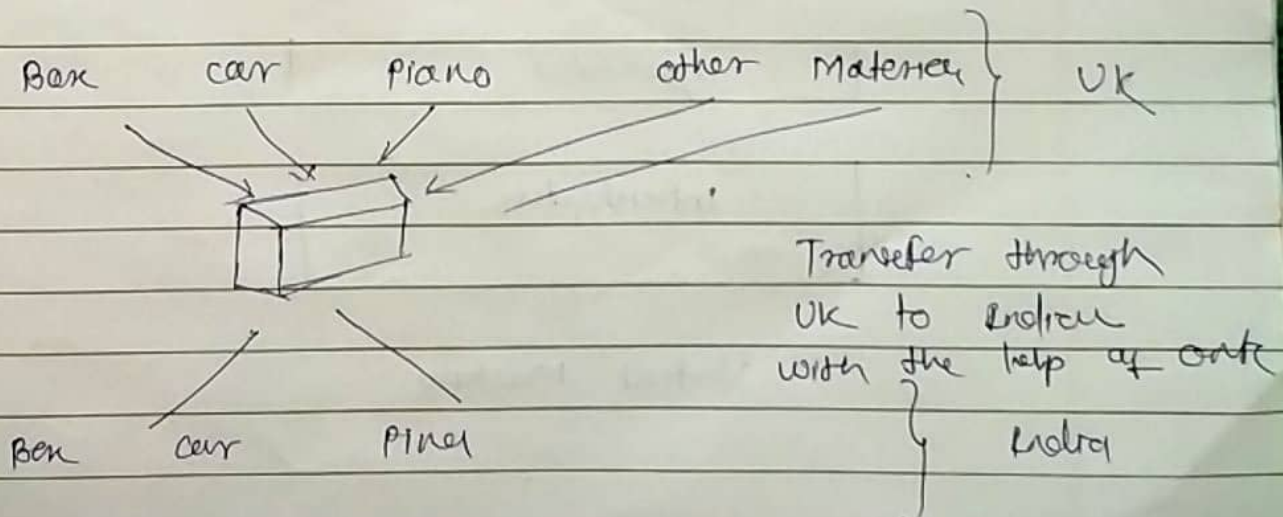 Box car Piano other Material } UK
Transfer through
UK to India
with the help of
Box car Piano } India